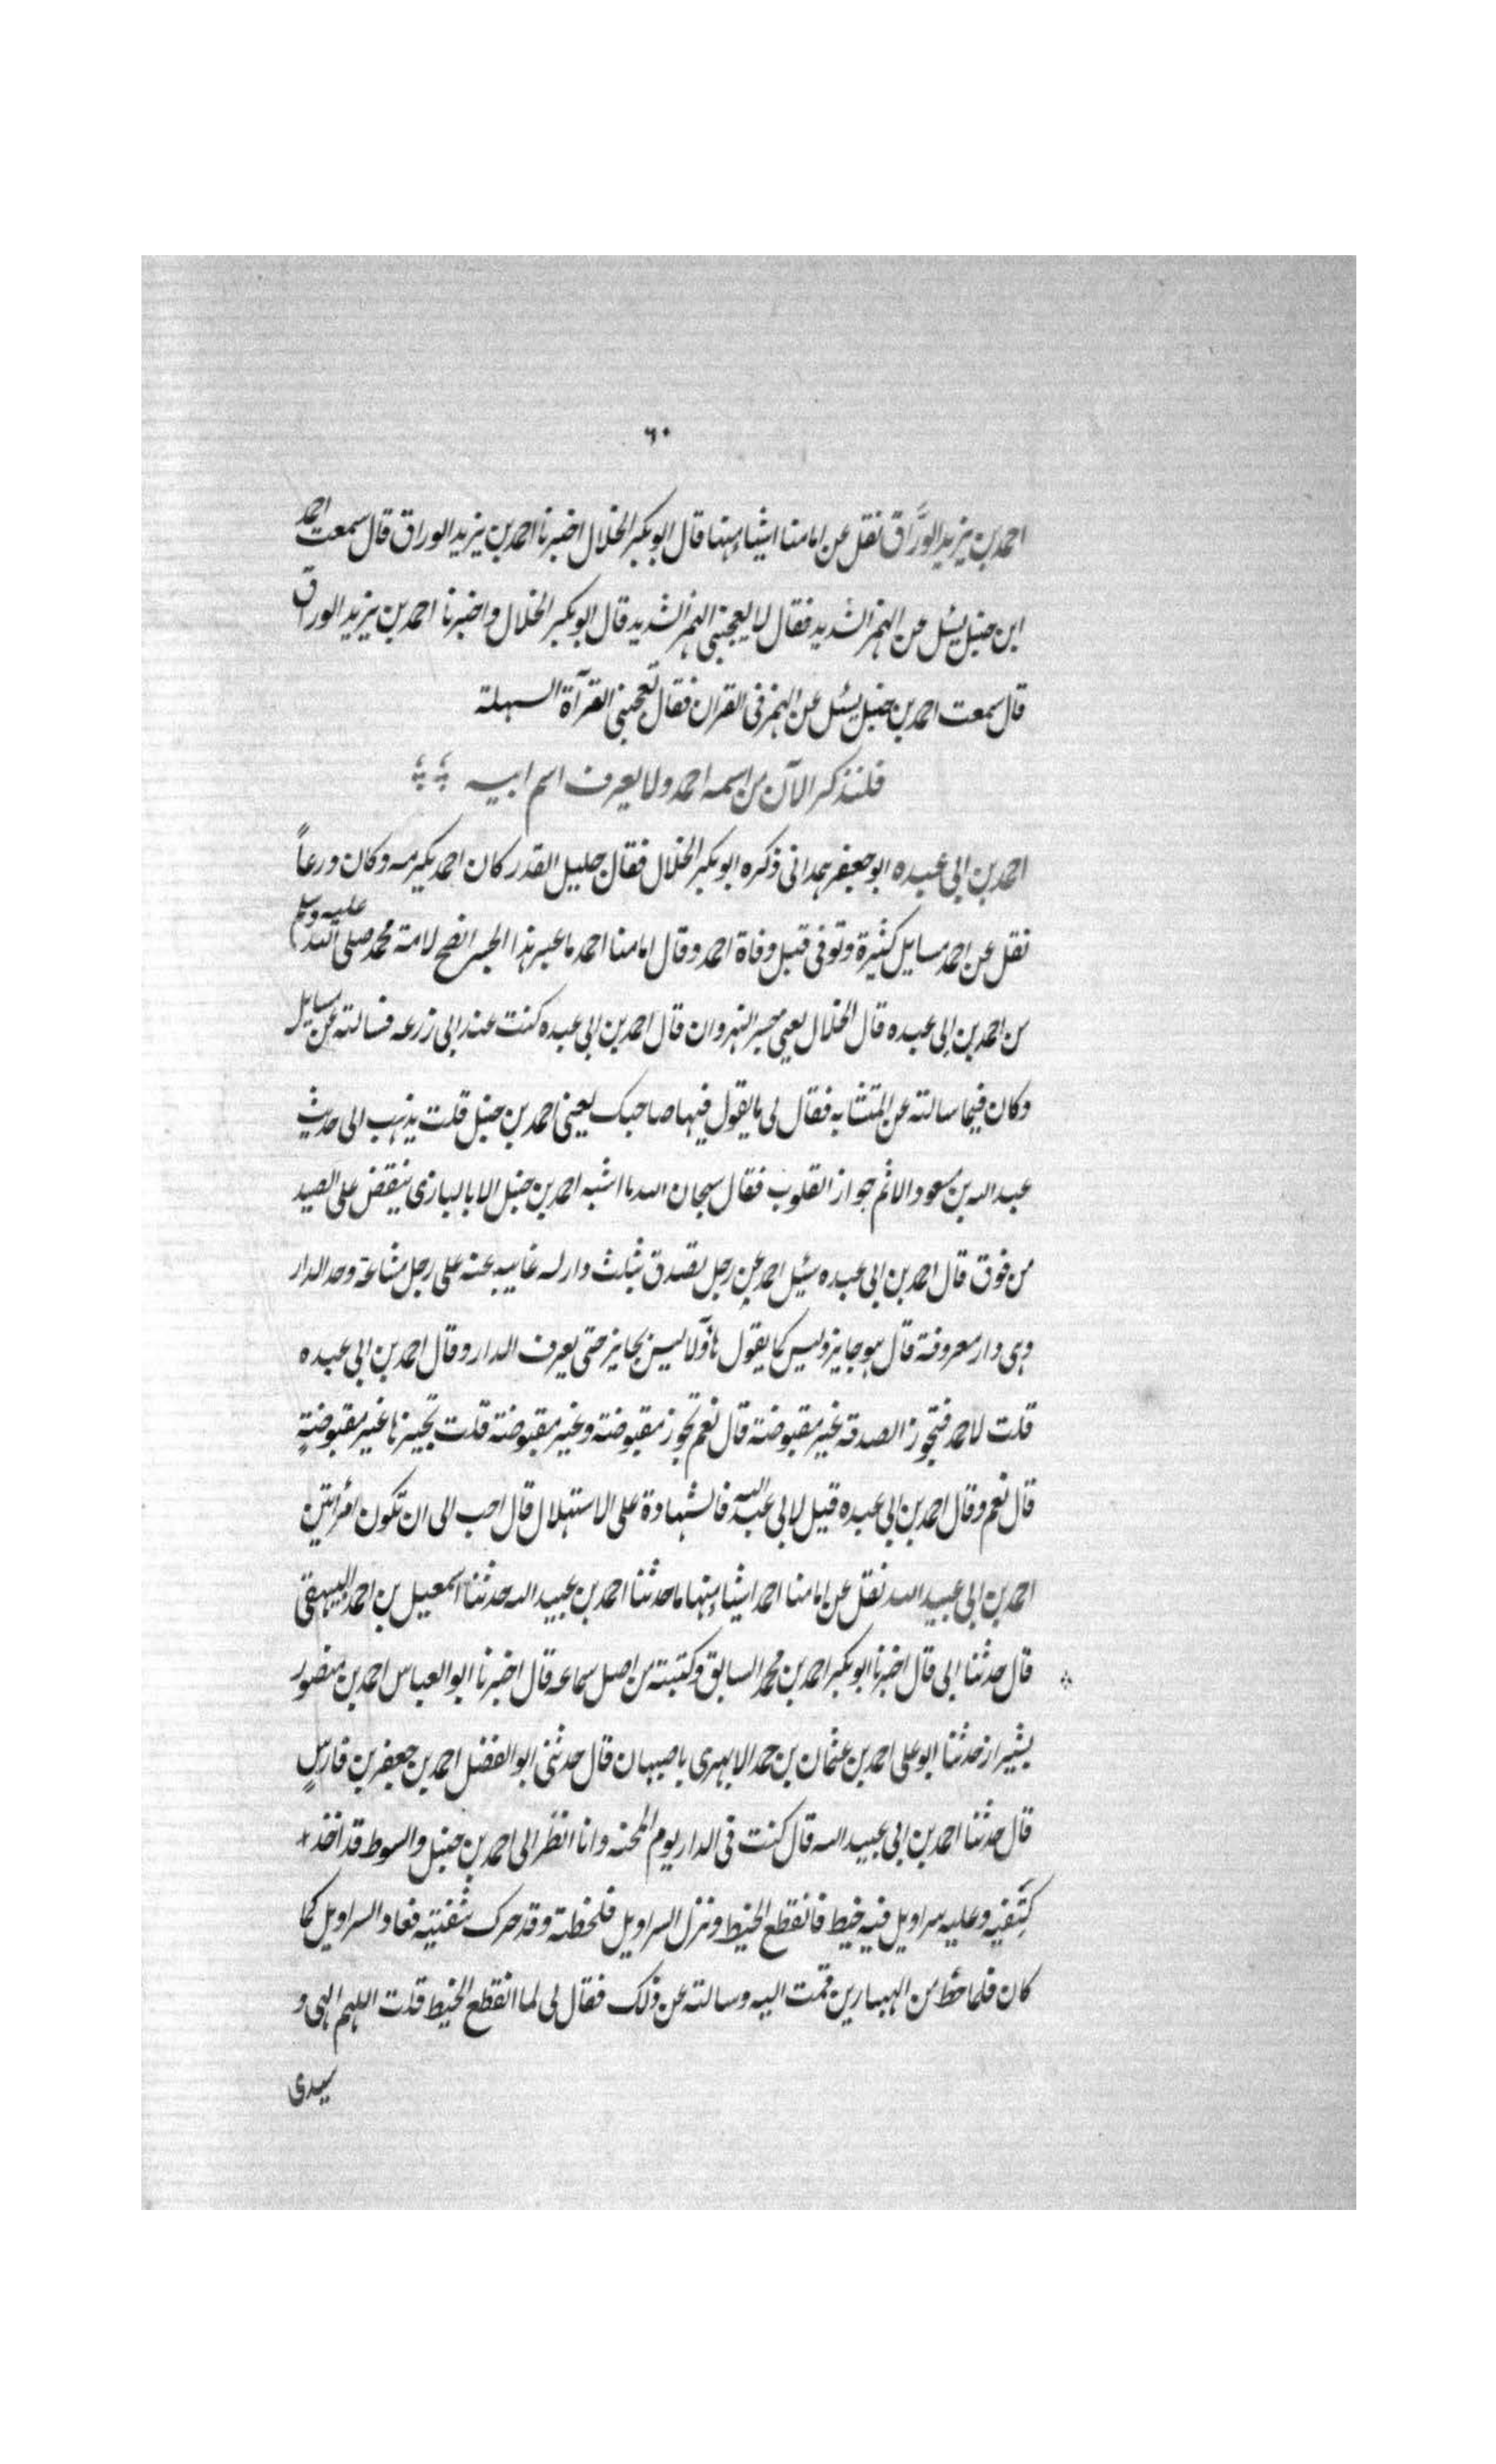 ٦٠
احمد بن يزيد الورَّاق نقل عن امامنا اشياء منها قال ابو بكر الخلال اخبرنا احمد بن يزيد الوراق قال سمعت احمد
ابن حنبل يسئل عن الهمز الشديد فقال لا يعجبنى الهمز الشديد قال ابو بكر الخلال واخبرنا احمد بن يزيد الوراق
قال سمعت احمد بن حنبل يسئل عن الهمز فى القران فقال تعجبنى القرآة السهلة
فلنذكر الآن من اسمه احمد ولا يعرف اسم ابيه
احمد بن ابى عبده ابو جعفر همدانى ذكره ابو بكر الخلال فقال جليل القدر كان احمد يكرمه وكان ورعاً
نقل عن احمد مسايل كثيرة وتوفى قبل وفاة احمد وقال امامنا احمد ما عبر هذا الجسر انصح لامة محمد صلى الله عليه وسلم
من احمد بن ابى عبده قال الخلال يعنى جسر النهروان قال احمد بن ابى عبده كنت عند ابى زرعه فسالته عن مسايل
وكان فيما سالته عن المتشابه فقال لى ما يقول فيها صاحبك يعنى احمد بن حنبل قلت يذهب الى حديث
عبد الله بن مسعود الاثم حواز القلوب فقال سبحان الله ما اشبه احمد بن حنبل الا بالبازى ينقض على الصيد
من فوق قال احمد بن ابى عبده سئيل احمد عن رجل تصدق بثلث دار له غايبه عنه على رجل مشاعة وحد الدار
وهى دار معروفة قال هو جايز وليس كما يقول هاؤلا ليس بجايز حتى يعرف الدار وقال احمد بن ابى عبده
قلت لاحمد فتجوز الصدقه غير مقبوضة قال نعم تجوز مقبوضة وغير مقبوضة قلت تجيزها غير مقبوضةٍ
قال نعم وقال احمد بن ابى عبده قيل لابى عبد الله فالشهادة على الاستهلال قال احب الى ان تكون امرأتين
احمد بن ابى عبيد الله نقل عن امامنا احمد اشياء منها ما حدثنا احمد بن عبيد الله حدثنا اسمعيل بن احمد البيهقى
قال حدثنا ابى قال اخبرنا ابو بكر احمد بن محمد السابق وكتبته من اصل سماعه قال اخبرنا ابو العباس احمد بن منصور
بشيراز حدثنا ابو على احمد بن عثمان بن حمد الابهرى باصبهان قال حدثنى ابو الفضل احمد بن جعفر بن فارسٍ
قال حدثنا احمد بن ابى عبيد الله قال كنت فى الدار يوم المحنه وانا انظر الى احمد بن حنبل والسوط قد اخذ
كتفيه وعليه سراويل فيه خيط فانقطع الخيط ونزل السراويل فلحظته وقد حرك شفتيه فعاد السراويل كما
كان فلما حط من الهبسارين قمت اليه وسالته عن ذلك فقال لى لما انقطع الخيط قلت اللهم الهى و
سيدى